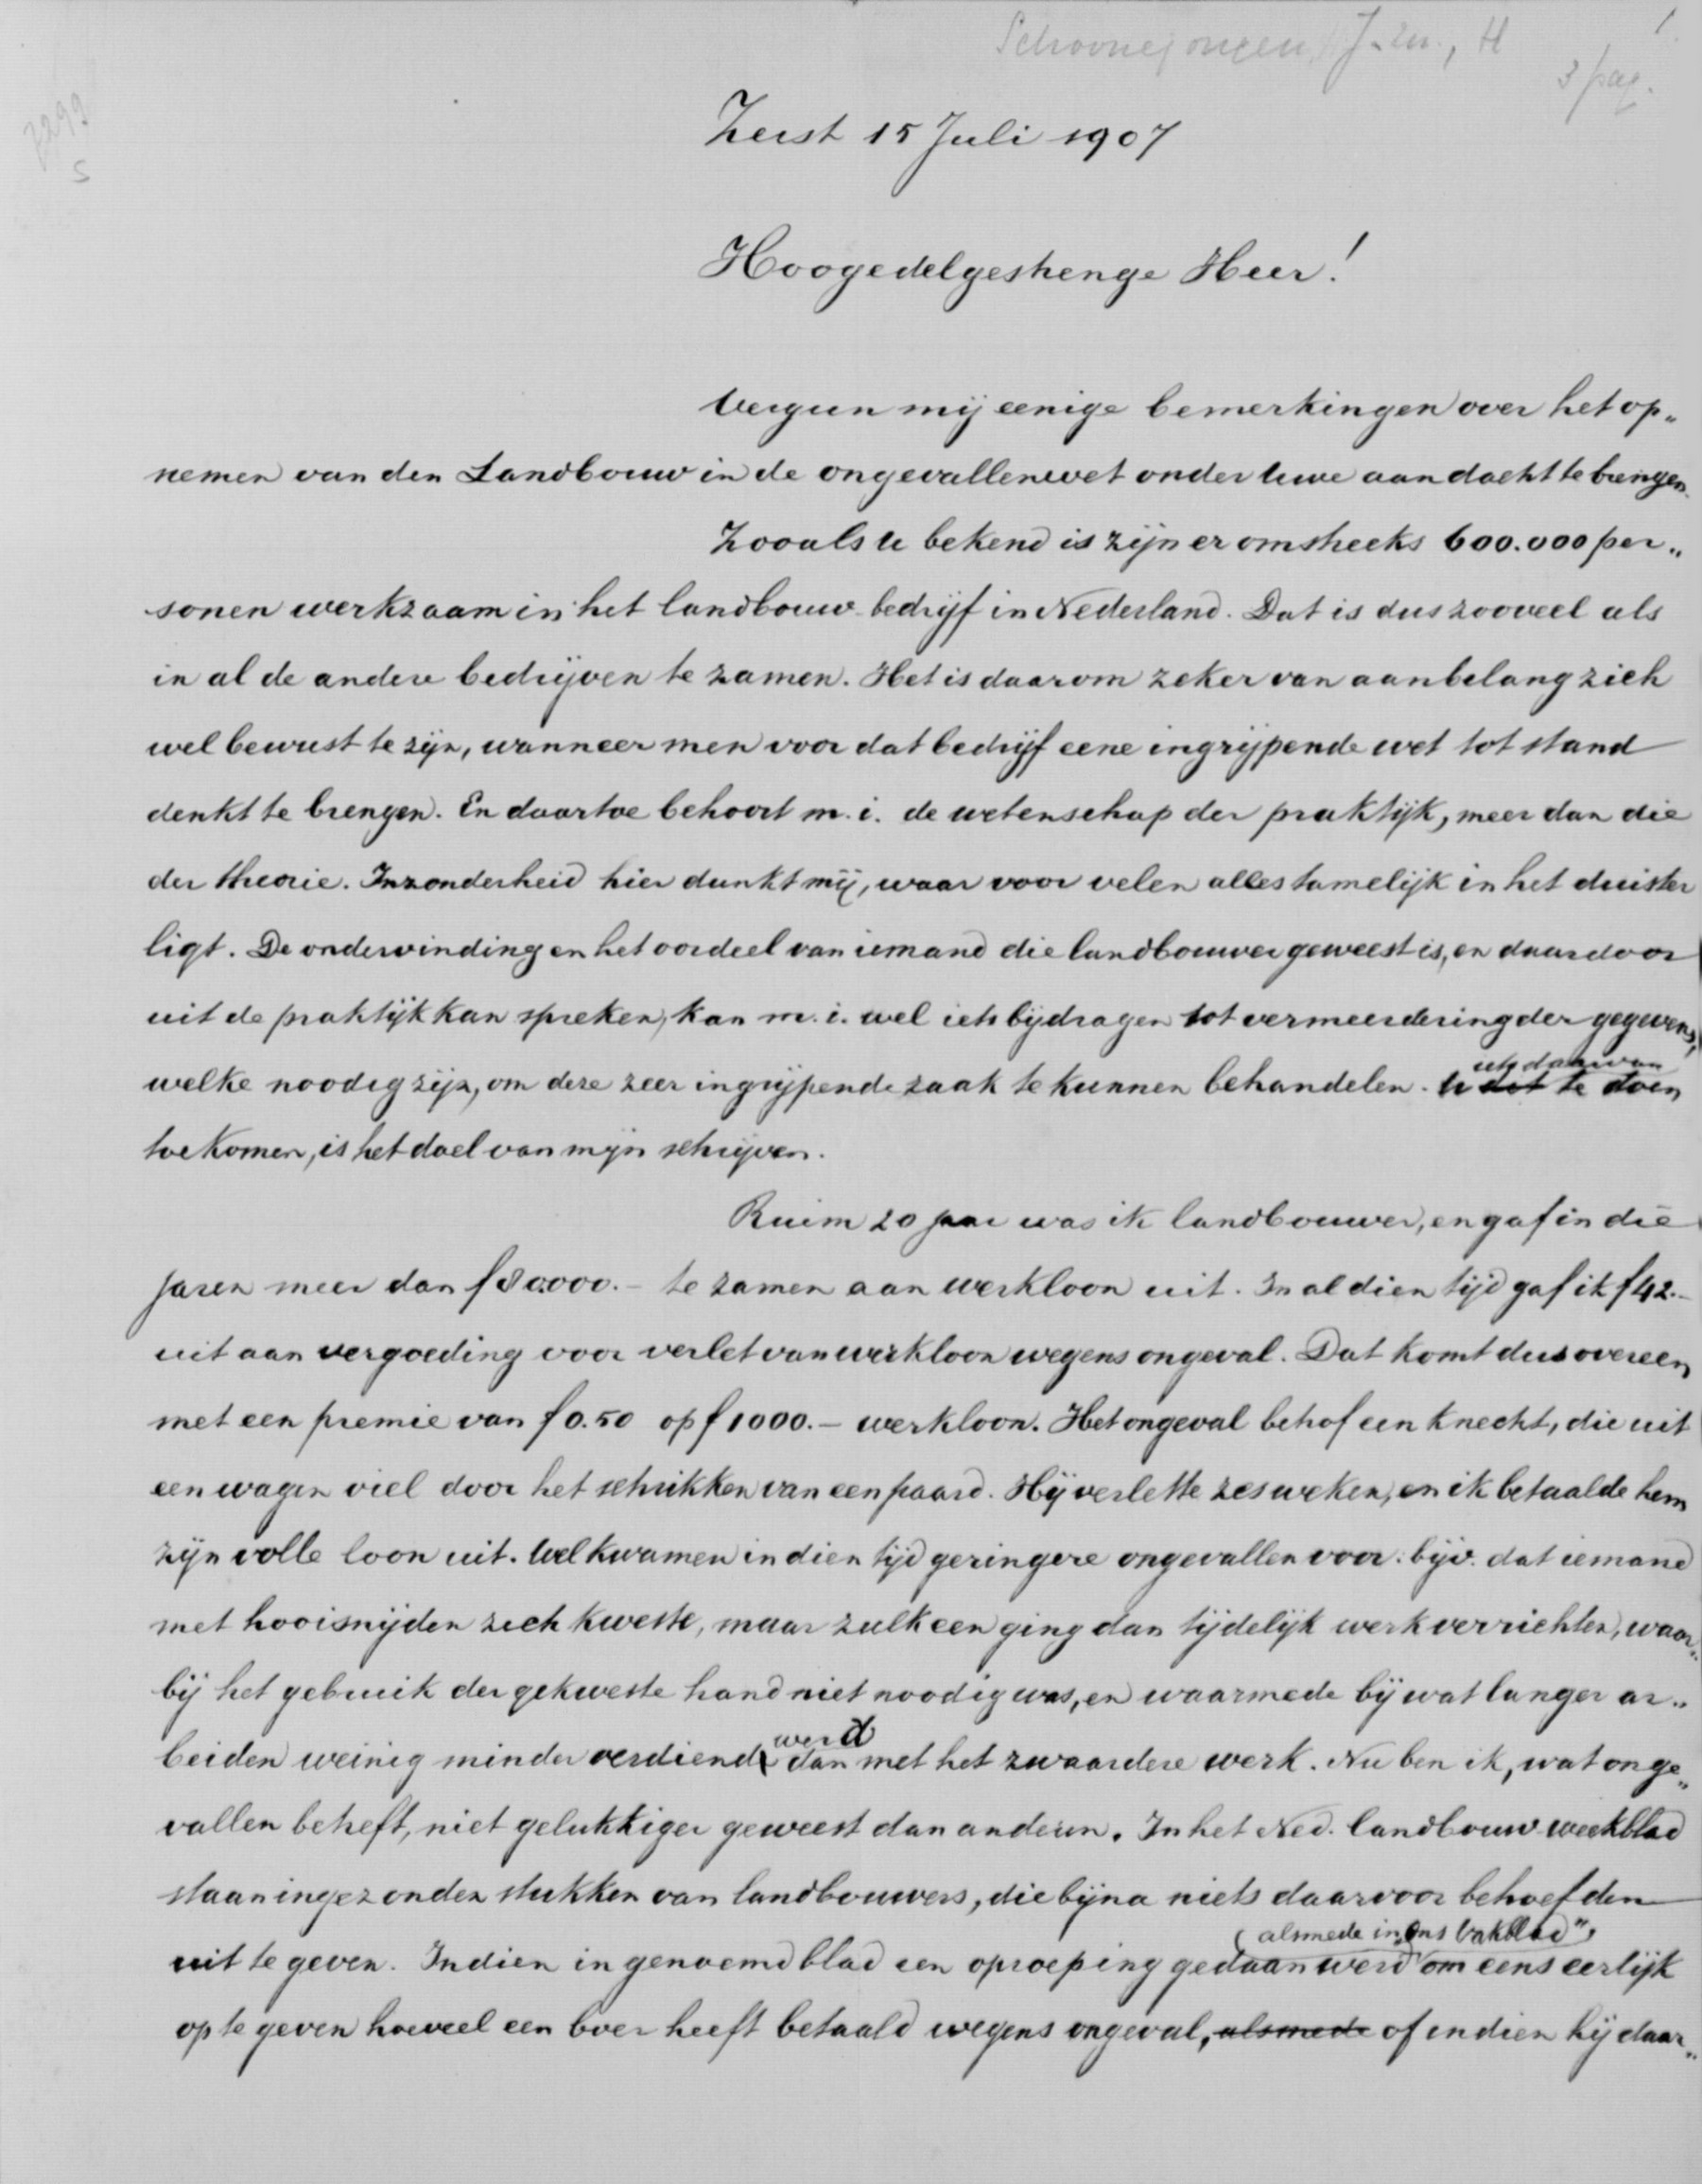 Schoonejongen, J. zn., H
1.
3 pag.
7299
S
Zeist 15 Juli 1907
Hoogedelgestrenge Heer!
Vergun mij eenige bemerkingen over het op„
nemen van den Landbouw in de ongevallenwet onder Uwe aandacht te brengen.
Zooals U bekend is zijn er omstreeks 600.000 per„
sonen werkzaam in het landbouw-bedrijf in Nederland. Dat is dus zooveel als
in al de andere bedrijven te zamen. Het is daarom zeker van aanbelang zich
wel bewust te zijn, wanneer men voor dat bedrijf eene ingrijpende wet tot stand
denkt te brengen. En daartoe behoort m. i. de wetenschap der praktijk, meer dan die
der theorie. Inzonderheid hier dunkt mij, waar voor velen alles tamelijk in het duister
ligt. De ondervinding en het oordeel van iemand die landbouwer geweest is, en daardoor
uit de praktijk kan spreken, kan m. i. wel iets bijdragen tot vermeerdering der gegevens,
iets daarvan
welke noodig zijn, om deze zeer ingrijpende zaak te kunnen behandelen. U dat te doen
toekomen, is het doel van mijn schrijven.
Ruim 20 jaar was ik landbouwer, en gaf in die
jaren meer dan f 80.000.- te zamen aan werkloon uit. In al dien tijd gaf ik f 42.-
uit aan vergoeding voor verlet van werkloon wegens ongeval. Dat komt dus overeen
met een premie van f 0.50 op f 1000.- werkloon. Het ongeval betrof een knecht, die uit
een wagen viel door het schrikken van een paard. Hij verlette zes weken, en ik betaalde hem
zijn volle loon uit. Wel kwamen in dien tijd geringere ongevallen voor: bijv. dat iemand
met hooisnijden zich kweste, maar zulk een ging dan tijdelijk werk verrichten, waar„
bij het gebruik der gekweste hand niet noodig was, en waarmede bij wat langer ar„
werd
beiden weinig minder verdiend dan met het zwaardere werk. Nu ben ik, wat onge„
vallen betreft, niet gelukkiger geweest dan anderen. In het Ned. landbouw-weekblad
staan ingezonden stukken van landbouwers, die bijna niets daarvoor behoefden
(alsmede in „Ons Vakblad”)
uit te geven. Indien in genoemd blad een oproeping gedaan werd om eens eerlijk
op te geven hoeveel een boer heeft betaald wegens ongeval, alsmede of indien hij daar„